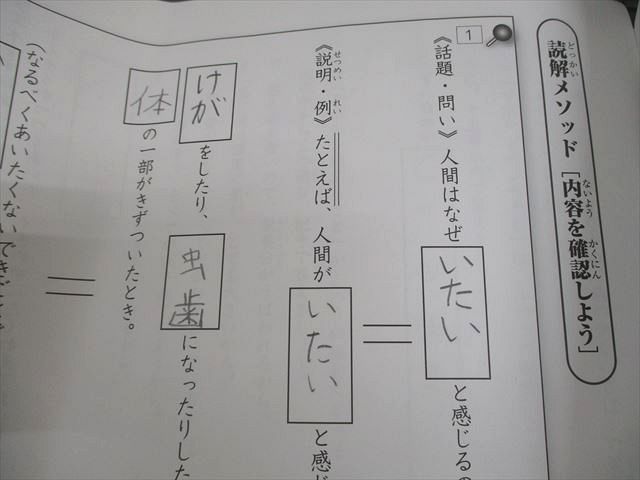 読解メソッド［内容を確認しよう］
どっかい
ないよう
かくにん
1
《話題・問い》人間はなぜ いたい と感じるの
《説明・例》たとえば、人間が いたい と感じ
せつめい
れい
けが をしたり、 虫歯 になったりした
体 の一部がきずついたとき。
（なるべくあいたくないできごとで